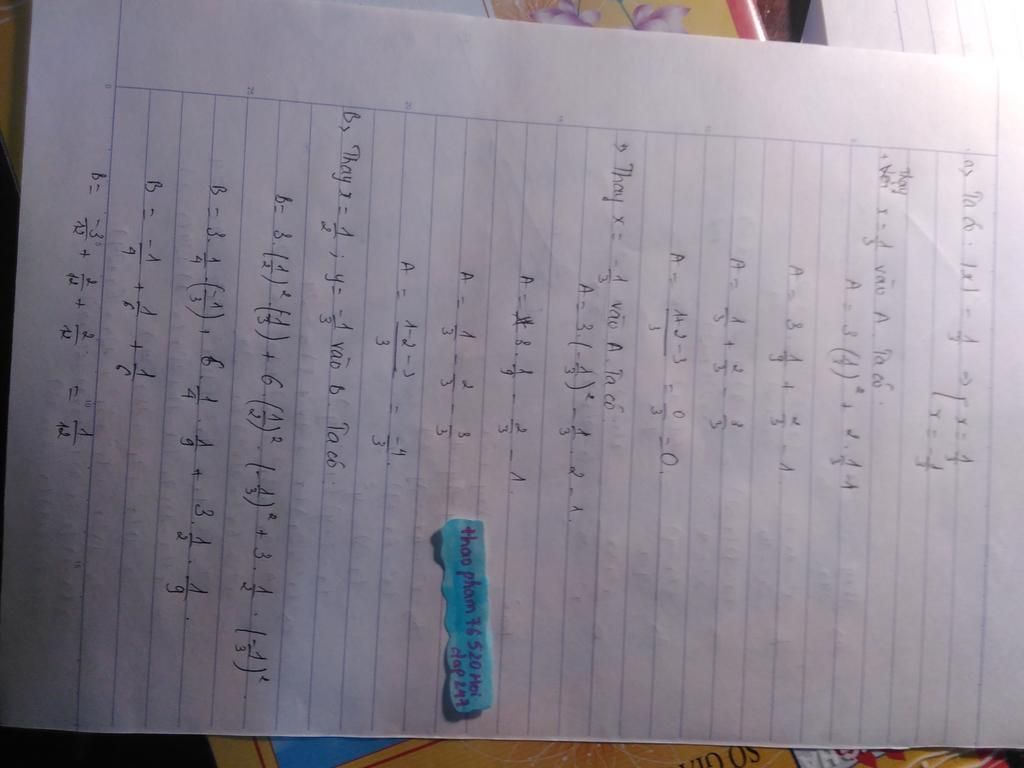 a, Ta có: |x| = 1/3 => [ x = 1/3
x = -1/3
Thay
+ Với x = 1/3 vào A Ta có.
A = 3 (1/3)² + 2 . 1/3 -1
A = 3 . 1/9 + 2/3 - 1
A = 1/3 + 2/3 - 3/3
A = 1+2-3/3 = 0/3 = 0.
+, Thay x = -1/3 vào A Ta có.
A = 3 (-1/3)² - 1/3 . 2 - 1.
A = 3 . 1/9 - 2/3 - 1.
A = 1/3 - 2/3 - 3/3
A = 1-2-3/3 = -4/3.
B, Thay x = 1/2 ; y = -1/3 vào B Ta có.
B = 3 . (1/2)² . (-1/3) + 6 (1/2)² . (-1/3)² + 3 . 1/2 . (-1/3)².
B = 3 . 1/4 . (-1/3) + 6 . 1/4 . 1/9 + 3 . 1/2 . 1/9.
B = -1/4 + 1/6 + 1/6
B = -3/12 + 2/12 + 2/12 = 1/12
thao pham 76520 Hoi
dap 247
SỔ GIÁ